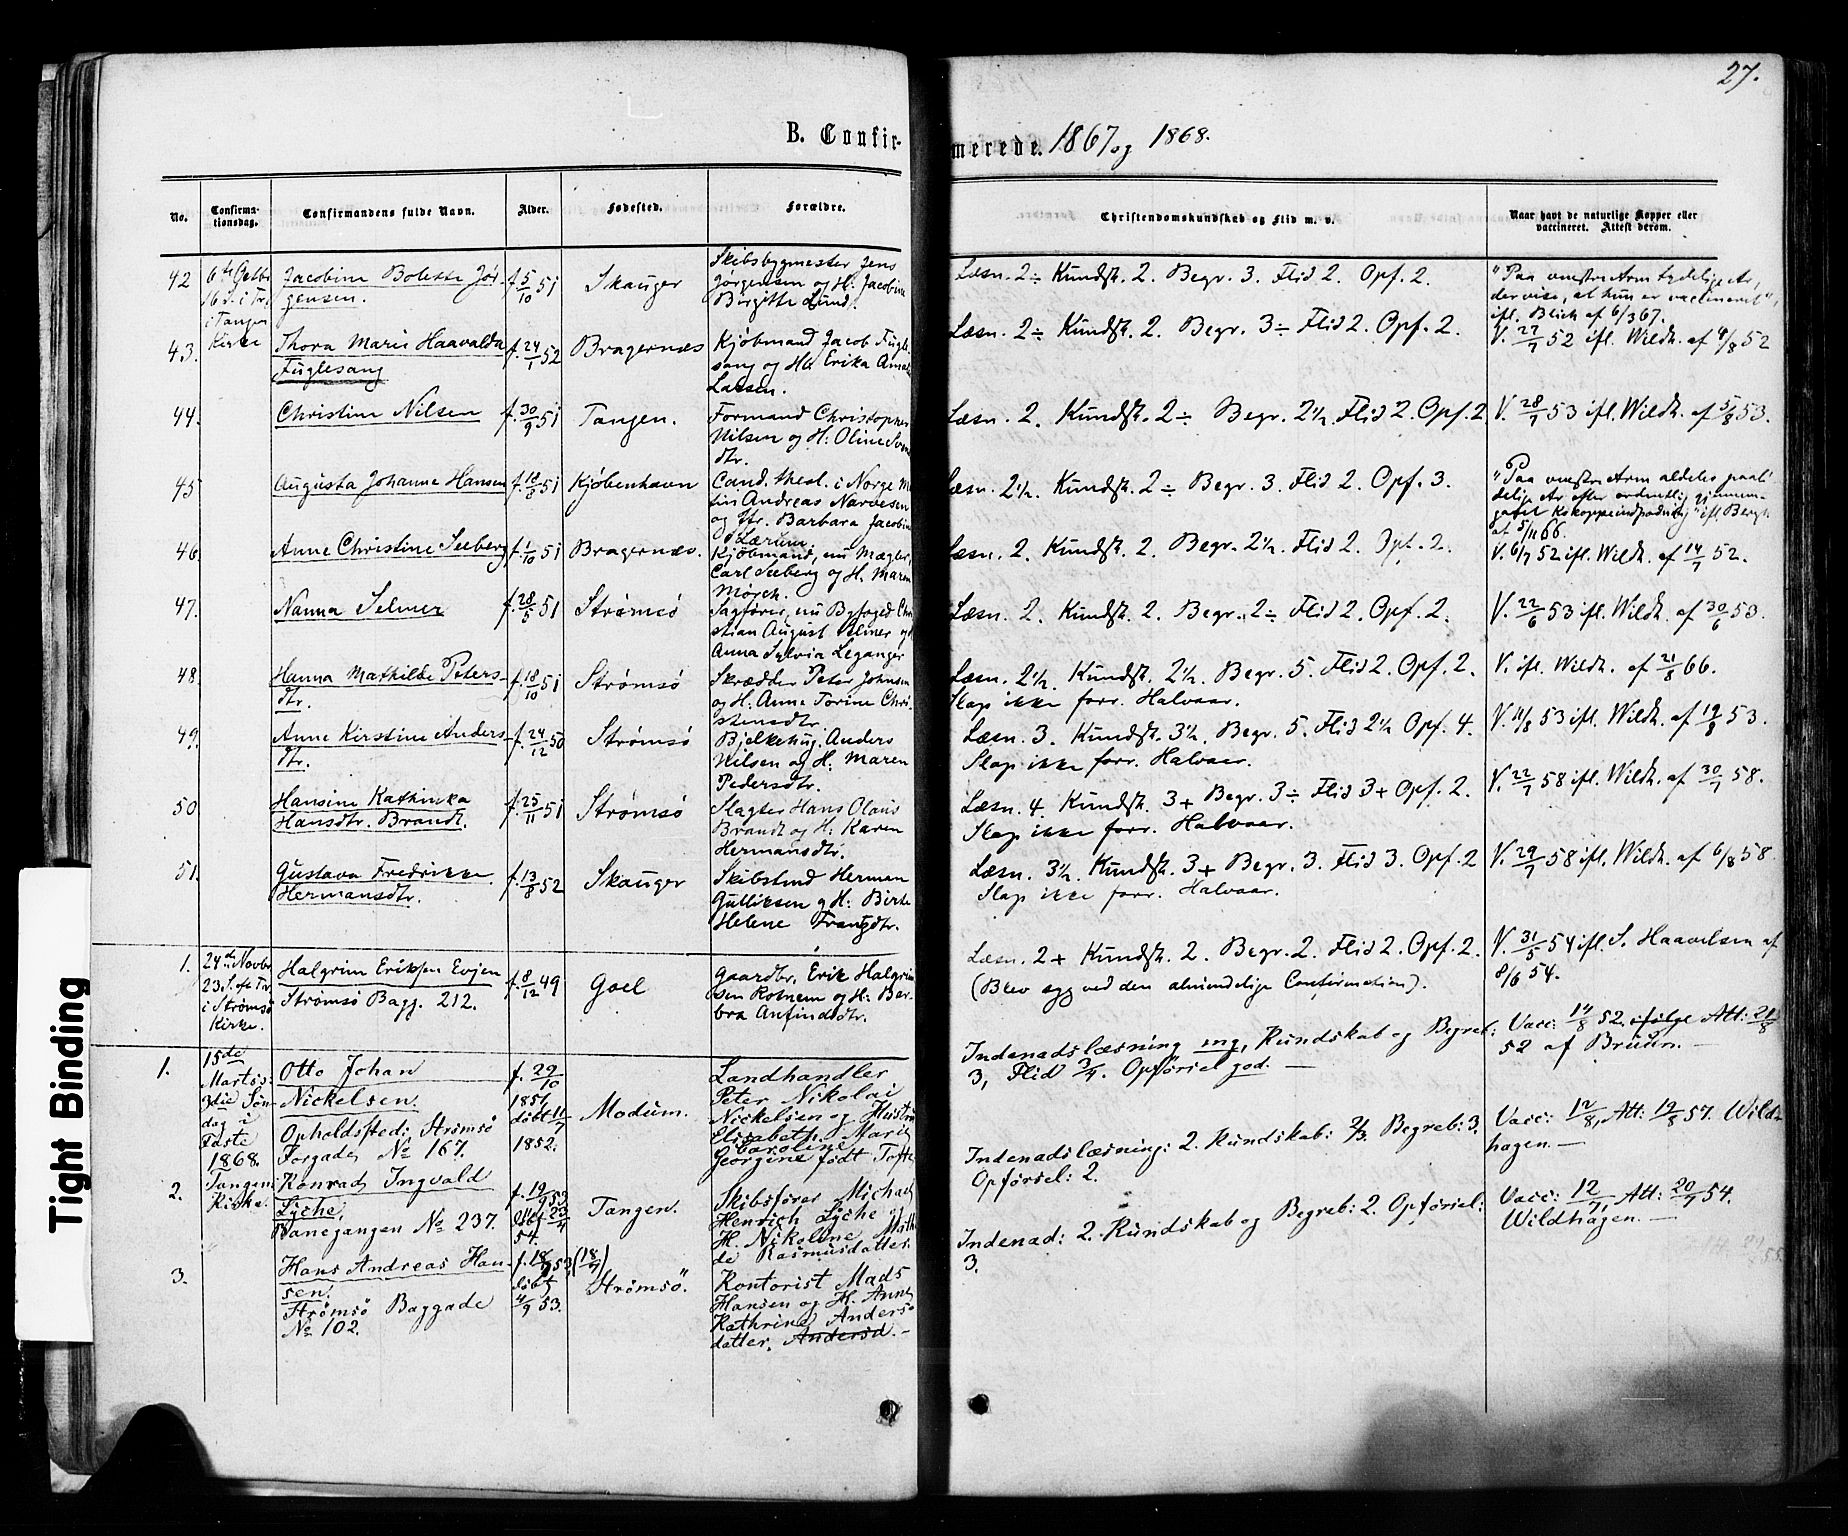 27.
B. Confirmerede. 1867 og 1868.
No. Confirmationsdag. Confirmandens fulde Navn. Alder. Fødested. Forældre. Christendomskundskab og Flid m. v. Naar havt de naturlige Kopper eller vaccineret. Attest derom.
42 6te Octbr
16 S. i Tr.
i Tangen
Kirke
Jacobine Bolette Jør-
gensen.
f. 5/10 51
Skauger
Skibsbygmester Jens
Jørgensen og H. Jacobine
Birgitte Lund.
Læsn. 2÷ Kundsk. 2. Begr. 3. Flid 2. Opf. 2.
"Paa venstre Arm tydelige Ar,
der vise, at hun er vaccineret",
ifl. Blich af 6/3 67.
43. Thora Marie Haavalda
Fuglesang
f. 24/1 52
Bragernæs
Kjøbmand Jacob Fugle-
sang og H. Erika Amalia
Larsen.
Læsn. 2÷ Kundsk. 2. Begr. 3÷ Flid 2. Opf. 2.
V. 27/7 52 ifl. Wildh. af 4/8 52
44. Christine Nilsen
f. 30/9 51
Tangen.
Formand Christopher
Nilsen og H: Oline
dtr.
Læsn. 2. Kundsk. 2÷ Begr. 2½. Flid 2. Opf. 2
V. 28/7 53 ifl. Wildh. af 5/8 53.
45 Augusta Johanne Hansen
f. 18/5 51
Kjøbenhavn
Cand. theol. i Norge Mar-
tin Andreas Narvesen
og Fr. Barbara Jacobine
Lærum.
Læsn. 2½. Kundsk. 2÷ Begr. 3. Flid 2. Opf. 3.
"Paa venstre Arm aldeles paali-
delige Ar efter ordentlig gjennem-
gaaet Kokoppeindpodning" ifl. Bergh
af 5/11 66.
46. Anne Christine Seeberg
f. 1/10 51
Bragernæs.
Kjøbmand, nu Mægler,
Carl Seeberg og H. Maren
Mørch.
Læsn. 2. Kundsk. 2. Begr. 2½. Flid 2. Opf. 2.
V. 6/7 52 ifl. Wildh. af 14/7 52.
47. Nanna Selmer
f. 28/5 51
Strømsø
Sagfører, nu Byfoged Chri-
stian August Selmer og
Anna Sylvia Leganger
Læsn. 2. Kundsk. 2. Begr. 2÷ Flid 2. Opf. 2.
V. 22/6 53 ifl. Wildh. af 30/6 53.
48 Hanna Mathilde Peters-
dtr.
f. 18/10 51
Strømsø
Skrædder Peter Johnsen
og H. Anne Torine Chri-
stensdtr.
Læsn. 2½. Kundsk. 2½. Begr. 5. Flid 2. Opf. 2.
Slap ikke forr. Halvaar.
V. ifl. Wildh. af 21/8 66.
49. Anne Kirstine Anders-
dtr.
f. 24/12 50
Strømsø
Bjelkehug. Anders
Nilsen og H. Maren
Pedersdtr.
Læsn. 3. Kundsk. 3½. Begr. 5. Flid 2½ Opf. 4.
Slap ikke forr. Halvaar.
V. 11/8 53 ifl. Wildh. af 19/8 53.
50 Hansine Kathinka
Hansdtr. Brandt.
f. 25/11 51
Strømsø
Slagter Hans Olaus
Brandt og H: Karen
Hermansdtr.
Læsn. 4. Kundsk. 3+ Begr. 3÷ Flid 3+ Opf. 2.
Slap ikke forr. Halvaar.
V. 22/7 58 ifl. Wildh. af 30/7 58.
51. Gustava Fredrikke
Hermansdtr.
f. 13/8 52
Skauger
Skibstmd Herman
Gulliksen og H: Birte
Helene Frantzdtr.
Læsn. 3½. Kundsk. 3+ Begr. 3. Flid 3. Opf. 2
Slap ikke forr. Halvaar.
V. 29/7 58 ifl. Wildh. af 6/8 58.
1. 24de Novbr
23 S. eft. Tr.
i Strømsø
Kirke.
Halgrim Eriksen Evjen
Strømsø Bagg. 212.
f. 8/12 49
Goel
Gaardbr. Erik Halgrim-
sen Rotneim og H: Bar-
bra Anfindsdtr.
Læsn. 2+ Kundsk. 2. Begr. 2. Flid 2. Opf. 2.
(Blev syg ved den almindelige Confirmation).
V. 31/5 54 ifl. S. Haavelsen af
8/6 54.
1. 15de
Marts:
3die Søn-
dag i
Faste
1868.
Tangens
Kirke.
Otto Johan
Nickelsen.
Opholdssted: Strømsø
Torgade, № 167.
f. 29/10
1851
døbt 11/7
1852.
Modum.
Landhandler
Peter Nikolai
Nickelsen og Hustru
Elisabeth Marie
Caroline
Georgine født Tofte
Indenadslæsning mg, Kundskab og Begreb:
3, Flid 3/4. Opførsel god. —
Vacc: 14/8 52. ifølge Att: 21/8
52 af Bruun. —
2. Konrad Ingvald
Lyche,
Tangen № 237.
f. 19/9 53
døbt 23/4
54.
Tangen.
Skibsfører Michael
Henrich Lyche og
H. Nikoline Mathil-
de Rasmusdatter.
Indenadslæsning: 2. Kundskab: 2/3. Begreb: 3.
Opførsel: 2.
Vacc: 12/8, Att: 19/8 57. Wild-
hagen. —
3. Hans Andreas Han-
sen.
Strømsø Baggade
№ 102.
f. 18/7 53, (18/7)
døbt
4/9 53.
Strømsö.
Kontorist Mads
Hansen og H. Anne
Kathrine Anders-
datter. Andersd. —
Indenad: 2. Kundskab og Begreb: 2. Opførsel:
3.
Vacc: 12/7, Att: 20/7 54.
Wildhagen. —
Tight Binding